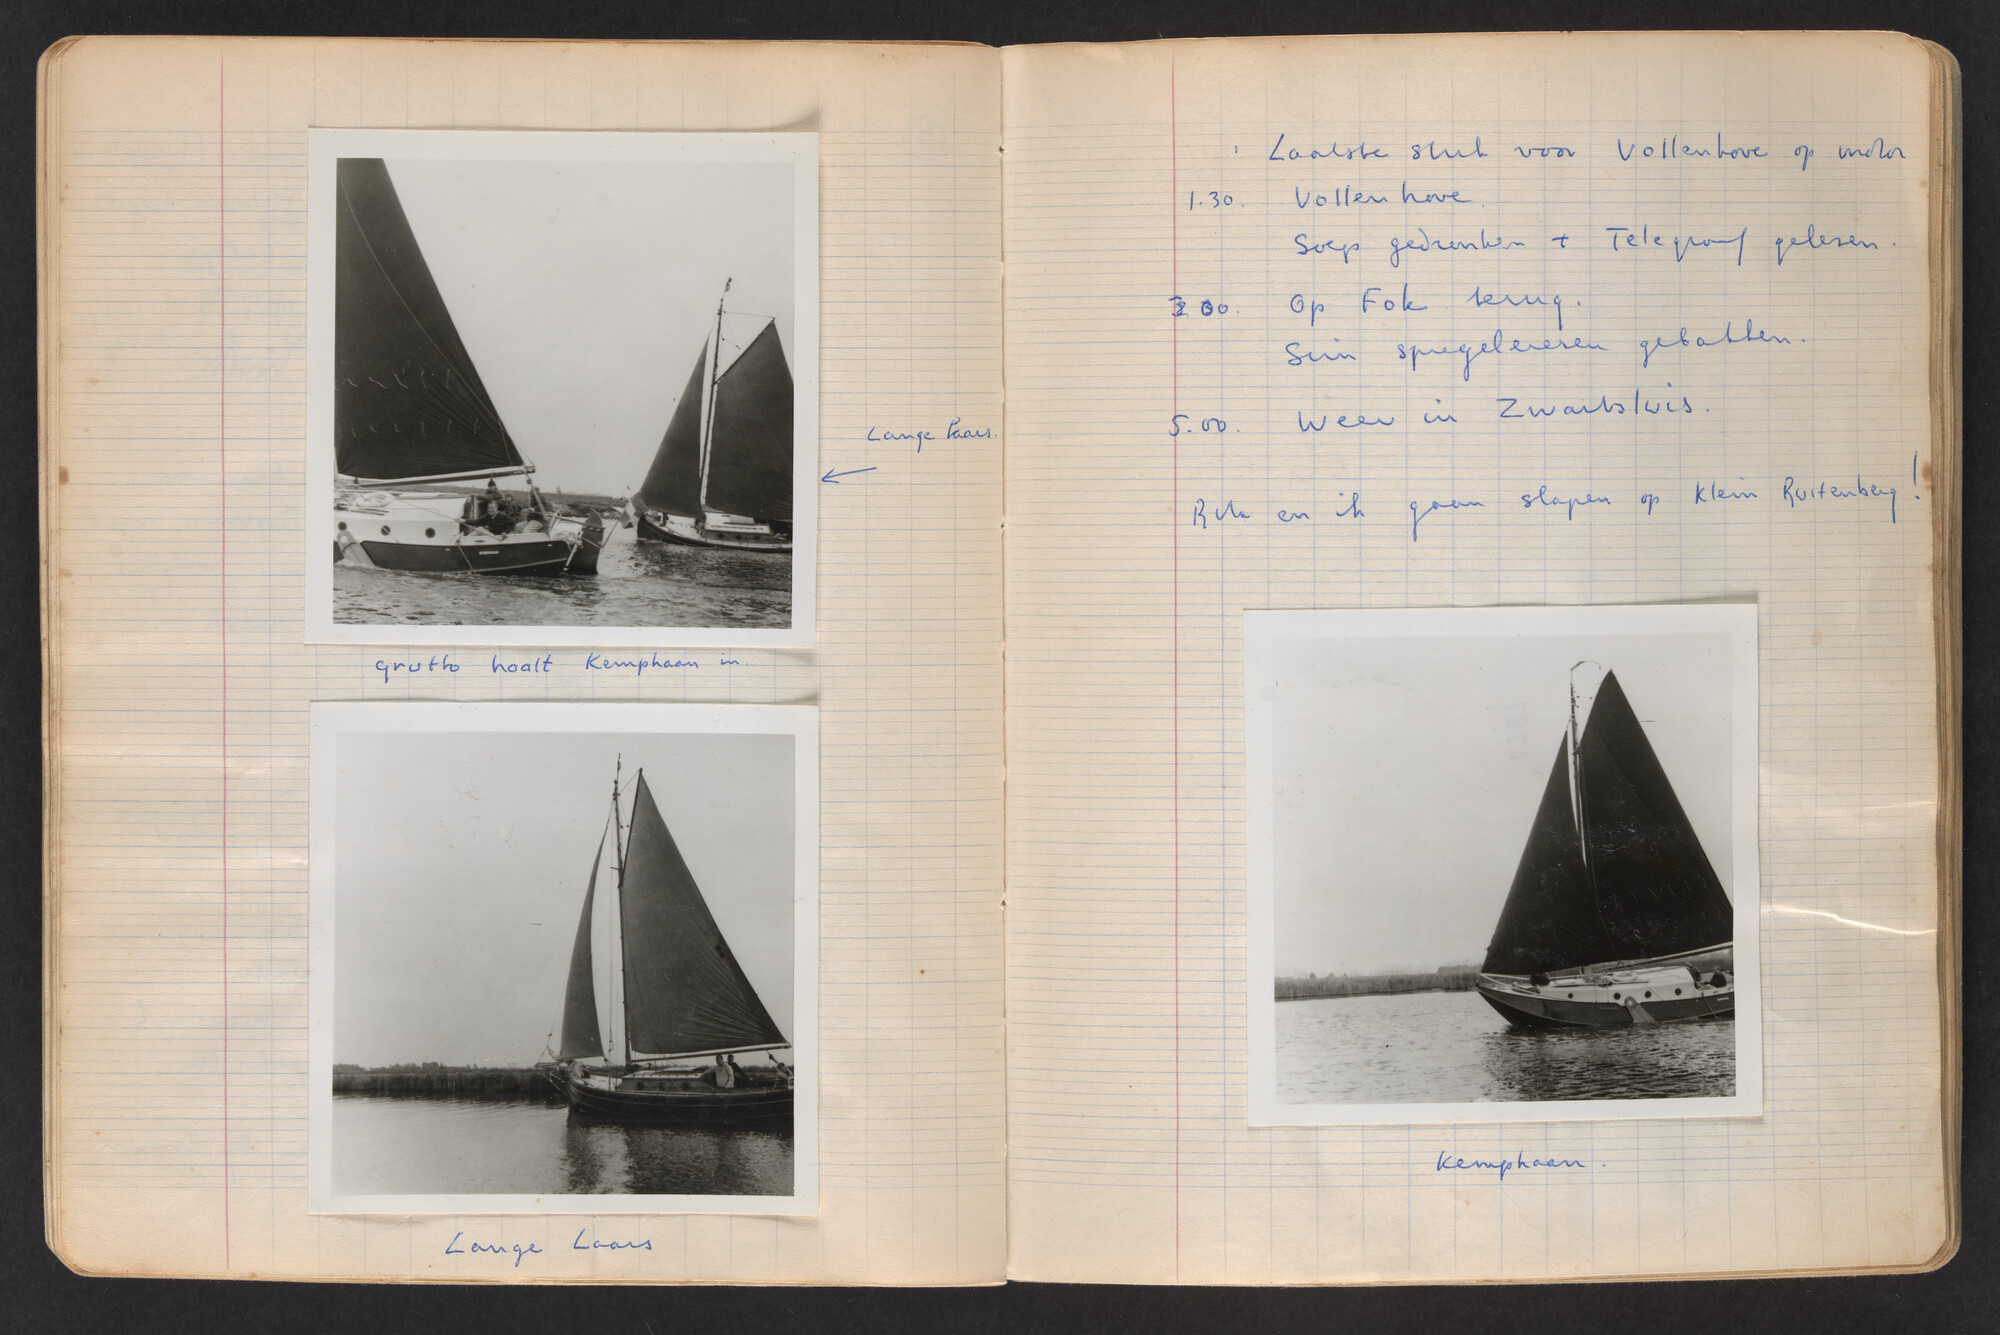 Lange Laars.
grutto haalt Kemphaan in.
Lange Laars
Laatste stuk voor Vollenhove op motor
1.30. Vollenhove.
Soep gedronken + Telegraaf gelezen.
3.00. Op Fok terug.
Sein spiegeleieren gebakken.
5.00. Weer in Zwartsluis.
en ik gaan slapen op Klein Ruitenberg!
Kemphaan.